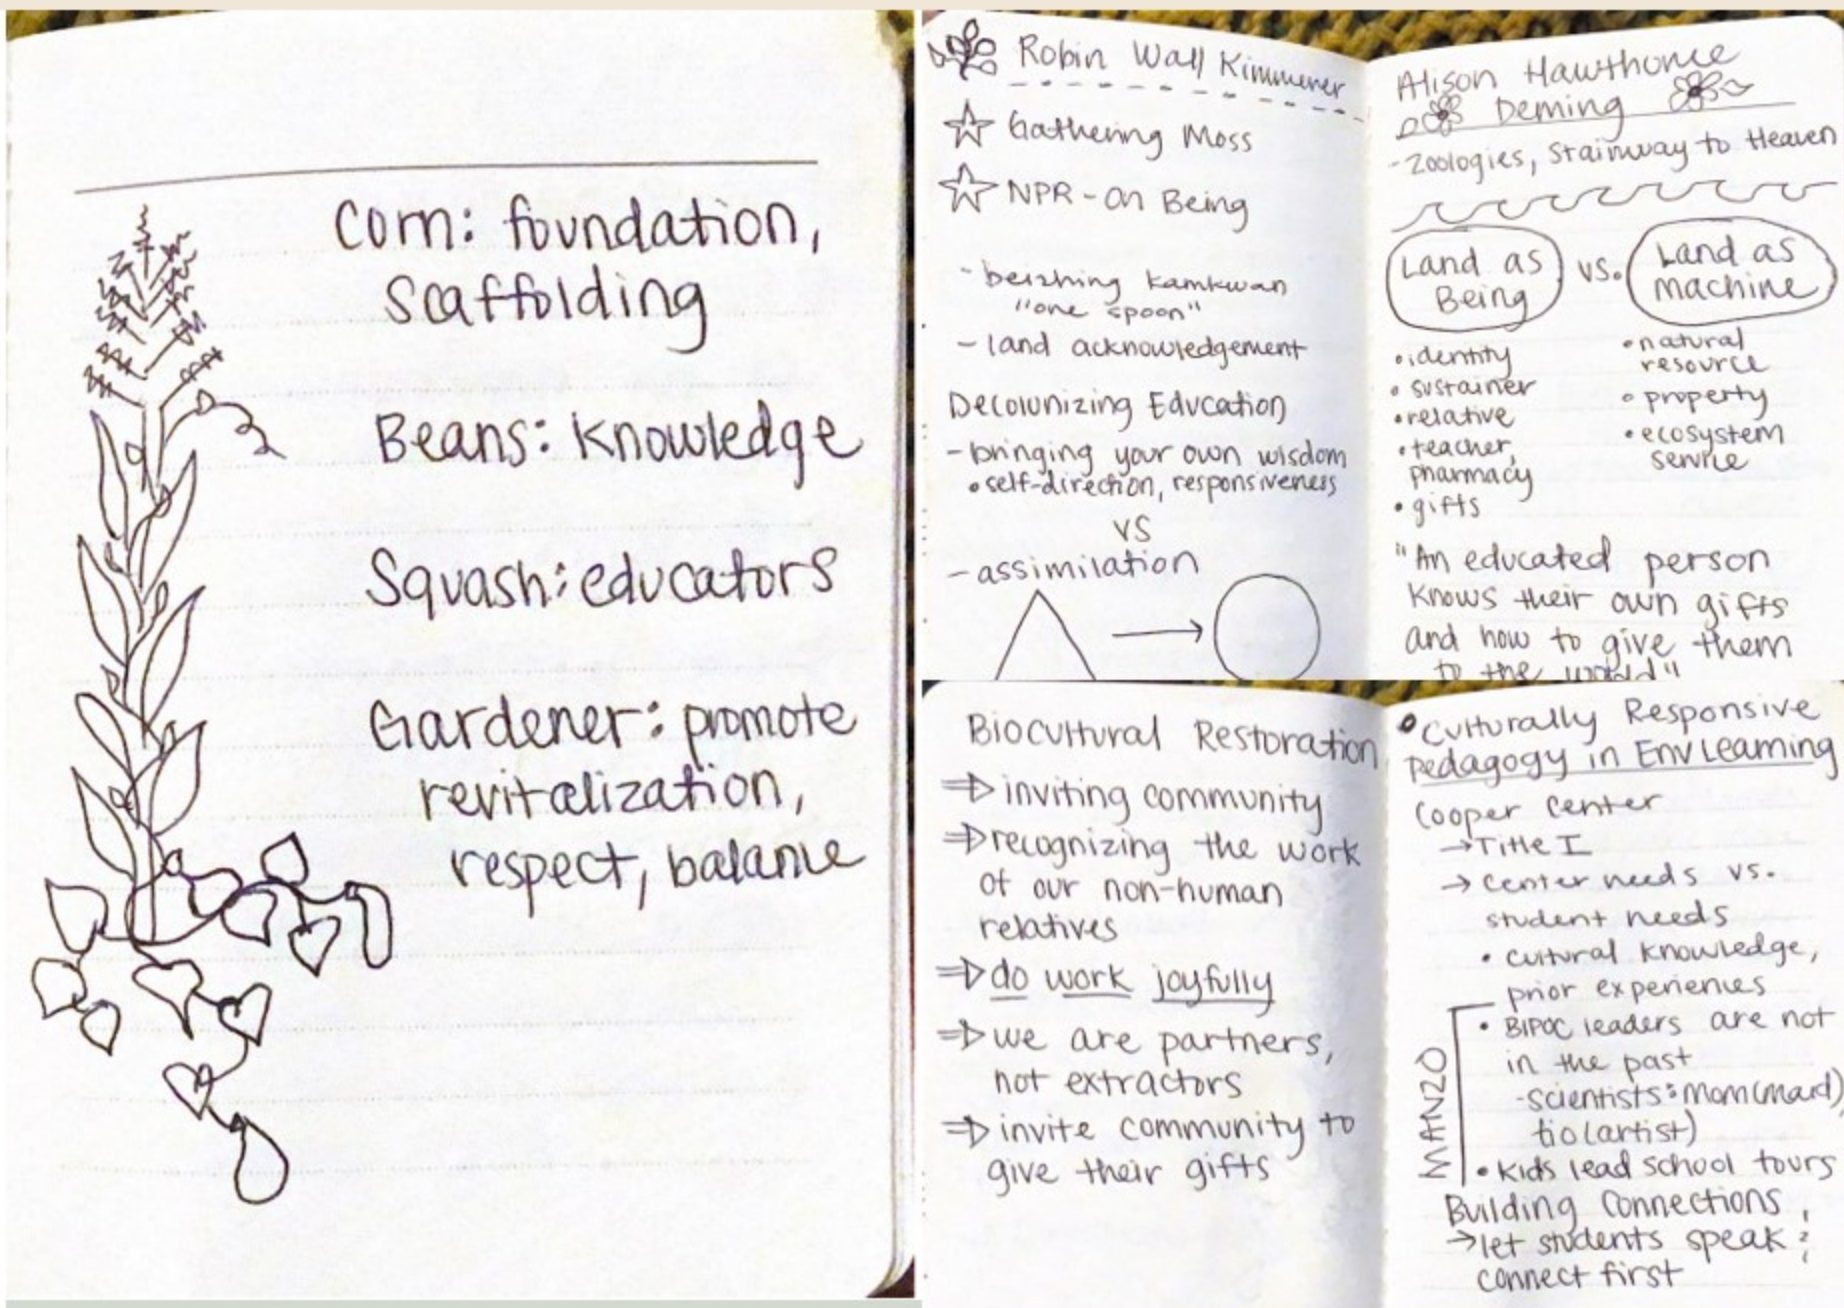 Corn: foundation,
scaffolding
Beans: knowledge
Squash: educators
Gardener: promote
revitalization,
respect, balance
Robin Wall Kimmerer
Gathering Moss
NPR - On Being
- beizhing kamkwan
"one spoon"
- land acknowledgement
Decolonizing Education
- bringing your own wisdom
• self-direction, responsiveness
VS
- assimilation
Alison Hawthorne
Deming
- Zoologies, Stairway to Heaven
Land as
Being
vs.
Land as
machine
• identity
• sustainer
• relative
• teacher,
pharmacy
• gifts
• natural
resource
• property
• ecosystem
service
"An educated person
knows their own gifts
and how to give them
to the world"
Biocultural Restoration
⇒ inviting community
⇒ recognizing the work
of our non-human
relatives
⇒ do work joyfully
⇒ we are partners,
not extractors
⇒ invite community to
give their gifts
• Culturally Responsive
Pedagogy in Env Learning
Cooper Center
→ Title I
→ Center needs vs.
student needs
• cultural knowledge,
prior experiences
MANZO
• BIPOC leaders are not
in the past
- scientists: Mom (maid)
tio (artist)
• Kids lead school tours
Building Connections
→ let students speak
connect first